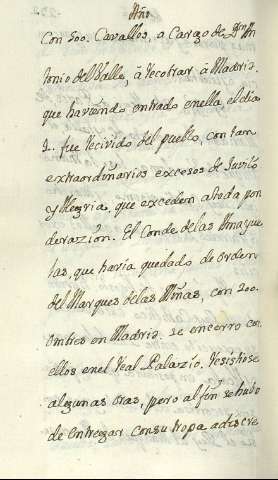 Año
Con 500. Cavallos, a Cargo de Dn An
tonio del Valle, à recobrar à Madrid.
que haviendo entrado en ella, el dia
2. fue recivido del pueblo, con tan
extraordinarios excesos de Juvilo
y Alegria, que exceden atoda pon
derazion. El Conde de las Amayue
las, que havia quedado de orden
del Marques de las Minas, con 300.
ombres en Madrid. se encerro con
ellos en el Real Palazio. resistiose
algunas oras, pero al fin se hubo
de entregar con su tropa adiscre